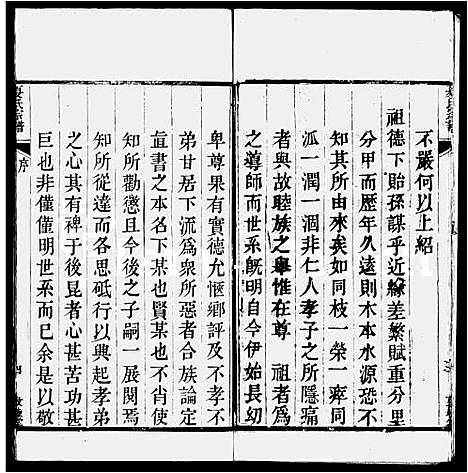 不嚴何以上紹
祖德下貽孫謀乎近緣差繁賦重分里
分甲而歷年久遠則木本水源恐不
知其所由來矣如同枝一榮一瘁同
派一潤一涸非仁人孝子之所隱痛
者與故睦族之舉惟在尊 祖者為
之導師而世系旣明自今伊始長幼
卑尊果有實德允愜鄉評及不孝不
弟甘居下流為衆所惡者合族論定
直書之本名下某也賢某也不肖使
知所勸懲且令後之子嗣一展閱焉
知所從違而各思砥行以興起孝弟
之心其有裨于後昆者心甚苦功甚
巨也非僅僅明世系而已余是以敬
序
四